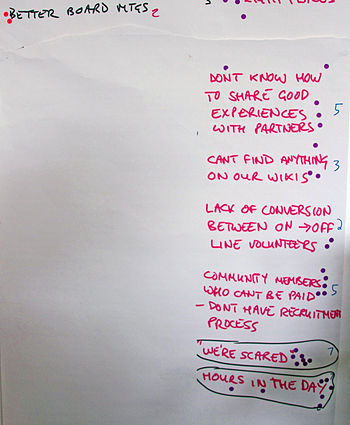 BETTER BOARD MTGS 2
DONT KNOW HOW
TO SHARE GOOD
EXPERIENCES 5
WITH PARTNERS
CANT FIND ANYTHING 3
ON OUR WIKIS
LACK OF CONVERSION
BETWEEN ON → OFF 2
LINE VOLUNTEERS
COMMUNITY MEMBERS
WHO CANT BE PAID 5
- DONT HAVE RECRUITMENT
PROCESS
"WE'RE SCARED 7
HOURS IN THE DAY